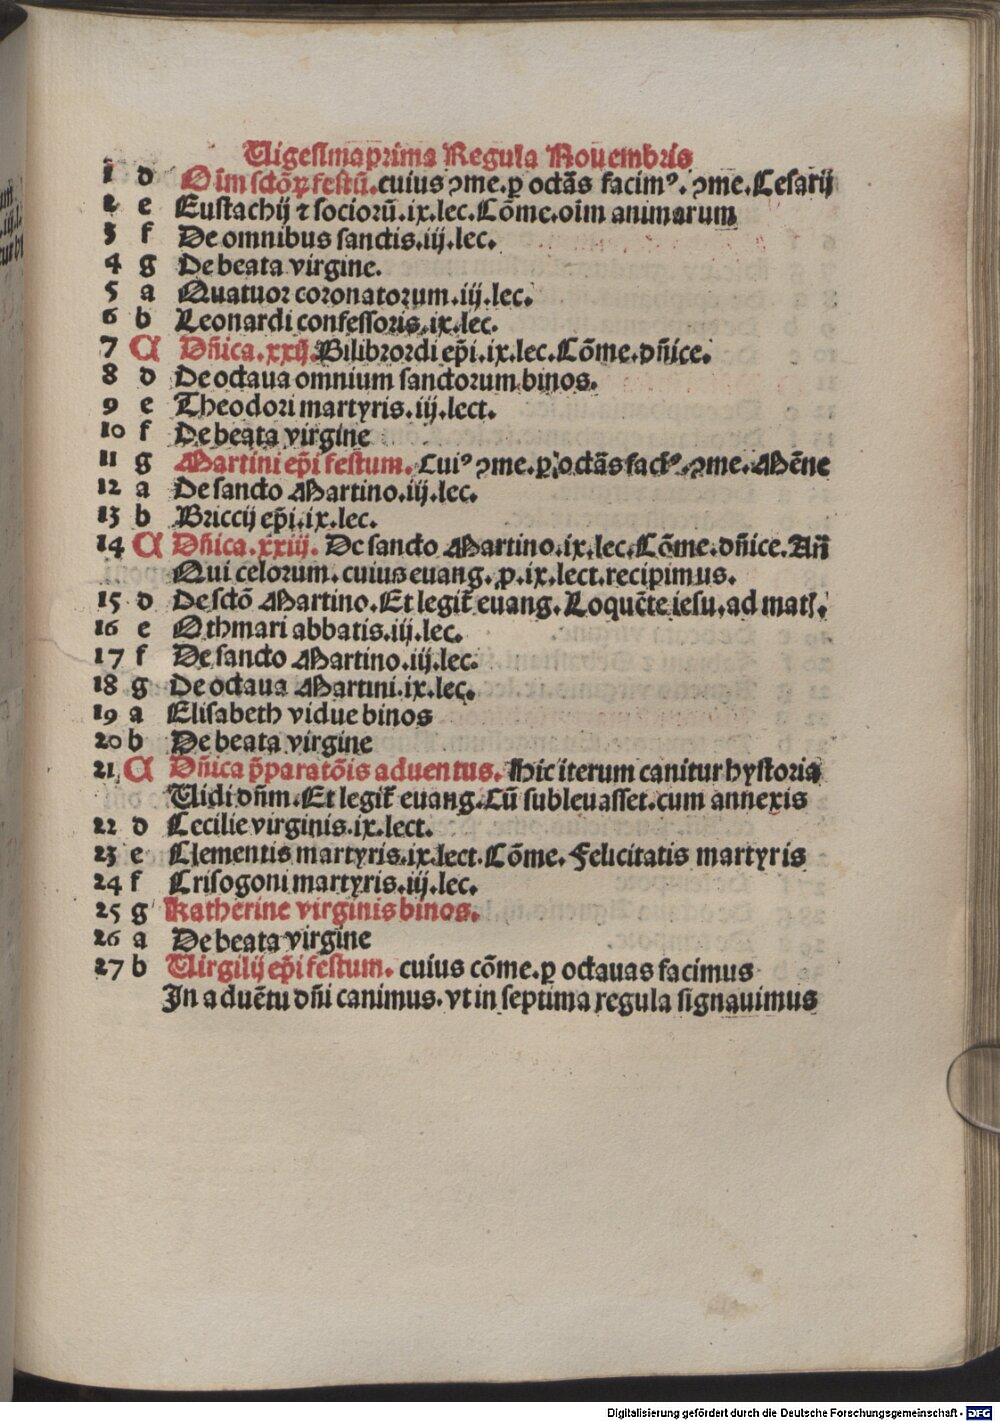 Uigesimaprima Regula Nouembris
1 d Oim sctõꝝ festũ. cuius ꝯme. ꝑ octãs facimꝰ. ꝯme. Cesarij
2 e Eustachij ⁊ sociorũ. ix. lec. Cõme. oim animarum
3 f De omnibus sanctis. iij. lec.
4 g De beata virgine.
5 a Quatuor coronatorum. iij. lec.
6 b Leonardi confessoris. ix. lec.
7 A Dñica. xxij. Bilibrordi ep̃i. ix. lec. Cõme. dñice.
8 d De octaua omnium sanctorum binos.
9 e Theodori martyris. iij. lect.
10 f De beata virgine
11 g Martini ep̃i festum. Cuiꝰ ꝯme. ꝑ octãs facĩꝰ. ꝯme. Mẽne
12 a De sancto Martino. iij. lec.
13 b Briccij ep̃i. ix. lec.
14 A Dñica. xxiij. De sancto Martino. ix. lec. Cõme. dñice. Añ
Qui celorum. cuius euang. ꝓ. ix. lect. recipimus.
15 d De sctõ Martino. Et legit̃ euang. Loquẽte iesu. ad matl.
16 e Othmari abbatis. iij. lec.
17 f De sancto Martino. iij. lec.
18 g De octaua Martini. ix. lec.
19 a Elisabeth vidue binos
20 b De beata virgine
21 A Dñica p̃paratõis aduentus. Hic iterum canitur hystoria
Uidi dñm. Et legit̃ euang. Cũ subleuasset. cum annexis
22 d Cecilie virginis. ix. lect.
23 e Clementis martyris. ix. lect. Cõme. Felicitatis martyris
24 f Crisogoni martyris. iij. lec.
25 g Katherine virginis binos.
26 a De beata virgine
27 b Uirgilij ep̃i festum. cuius cõme. ꝑ octauas facimus
In aduẽtu dñi canimus. vt in septima regula signauimus
Digitalisierung gefördert durch die Deutsche Forschungsgemeinschaft - DFG